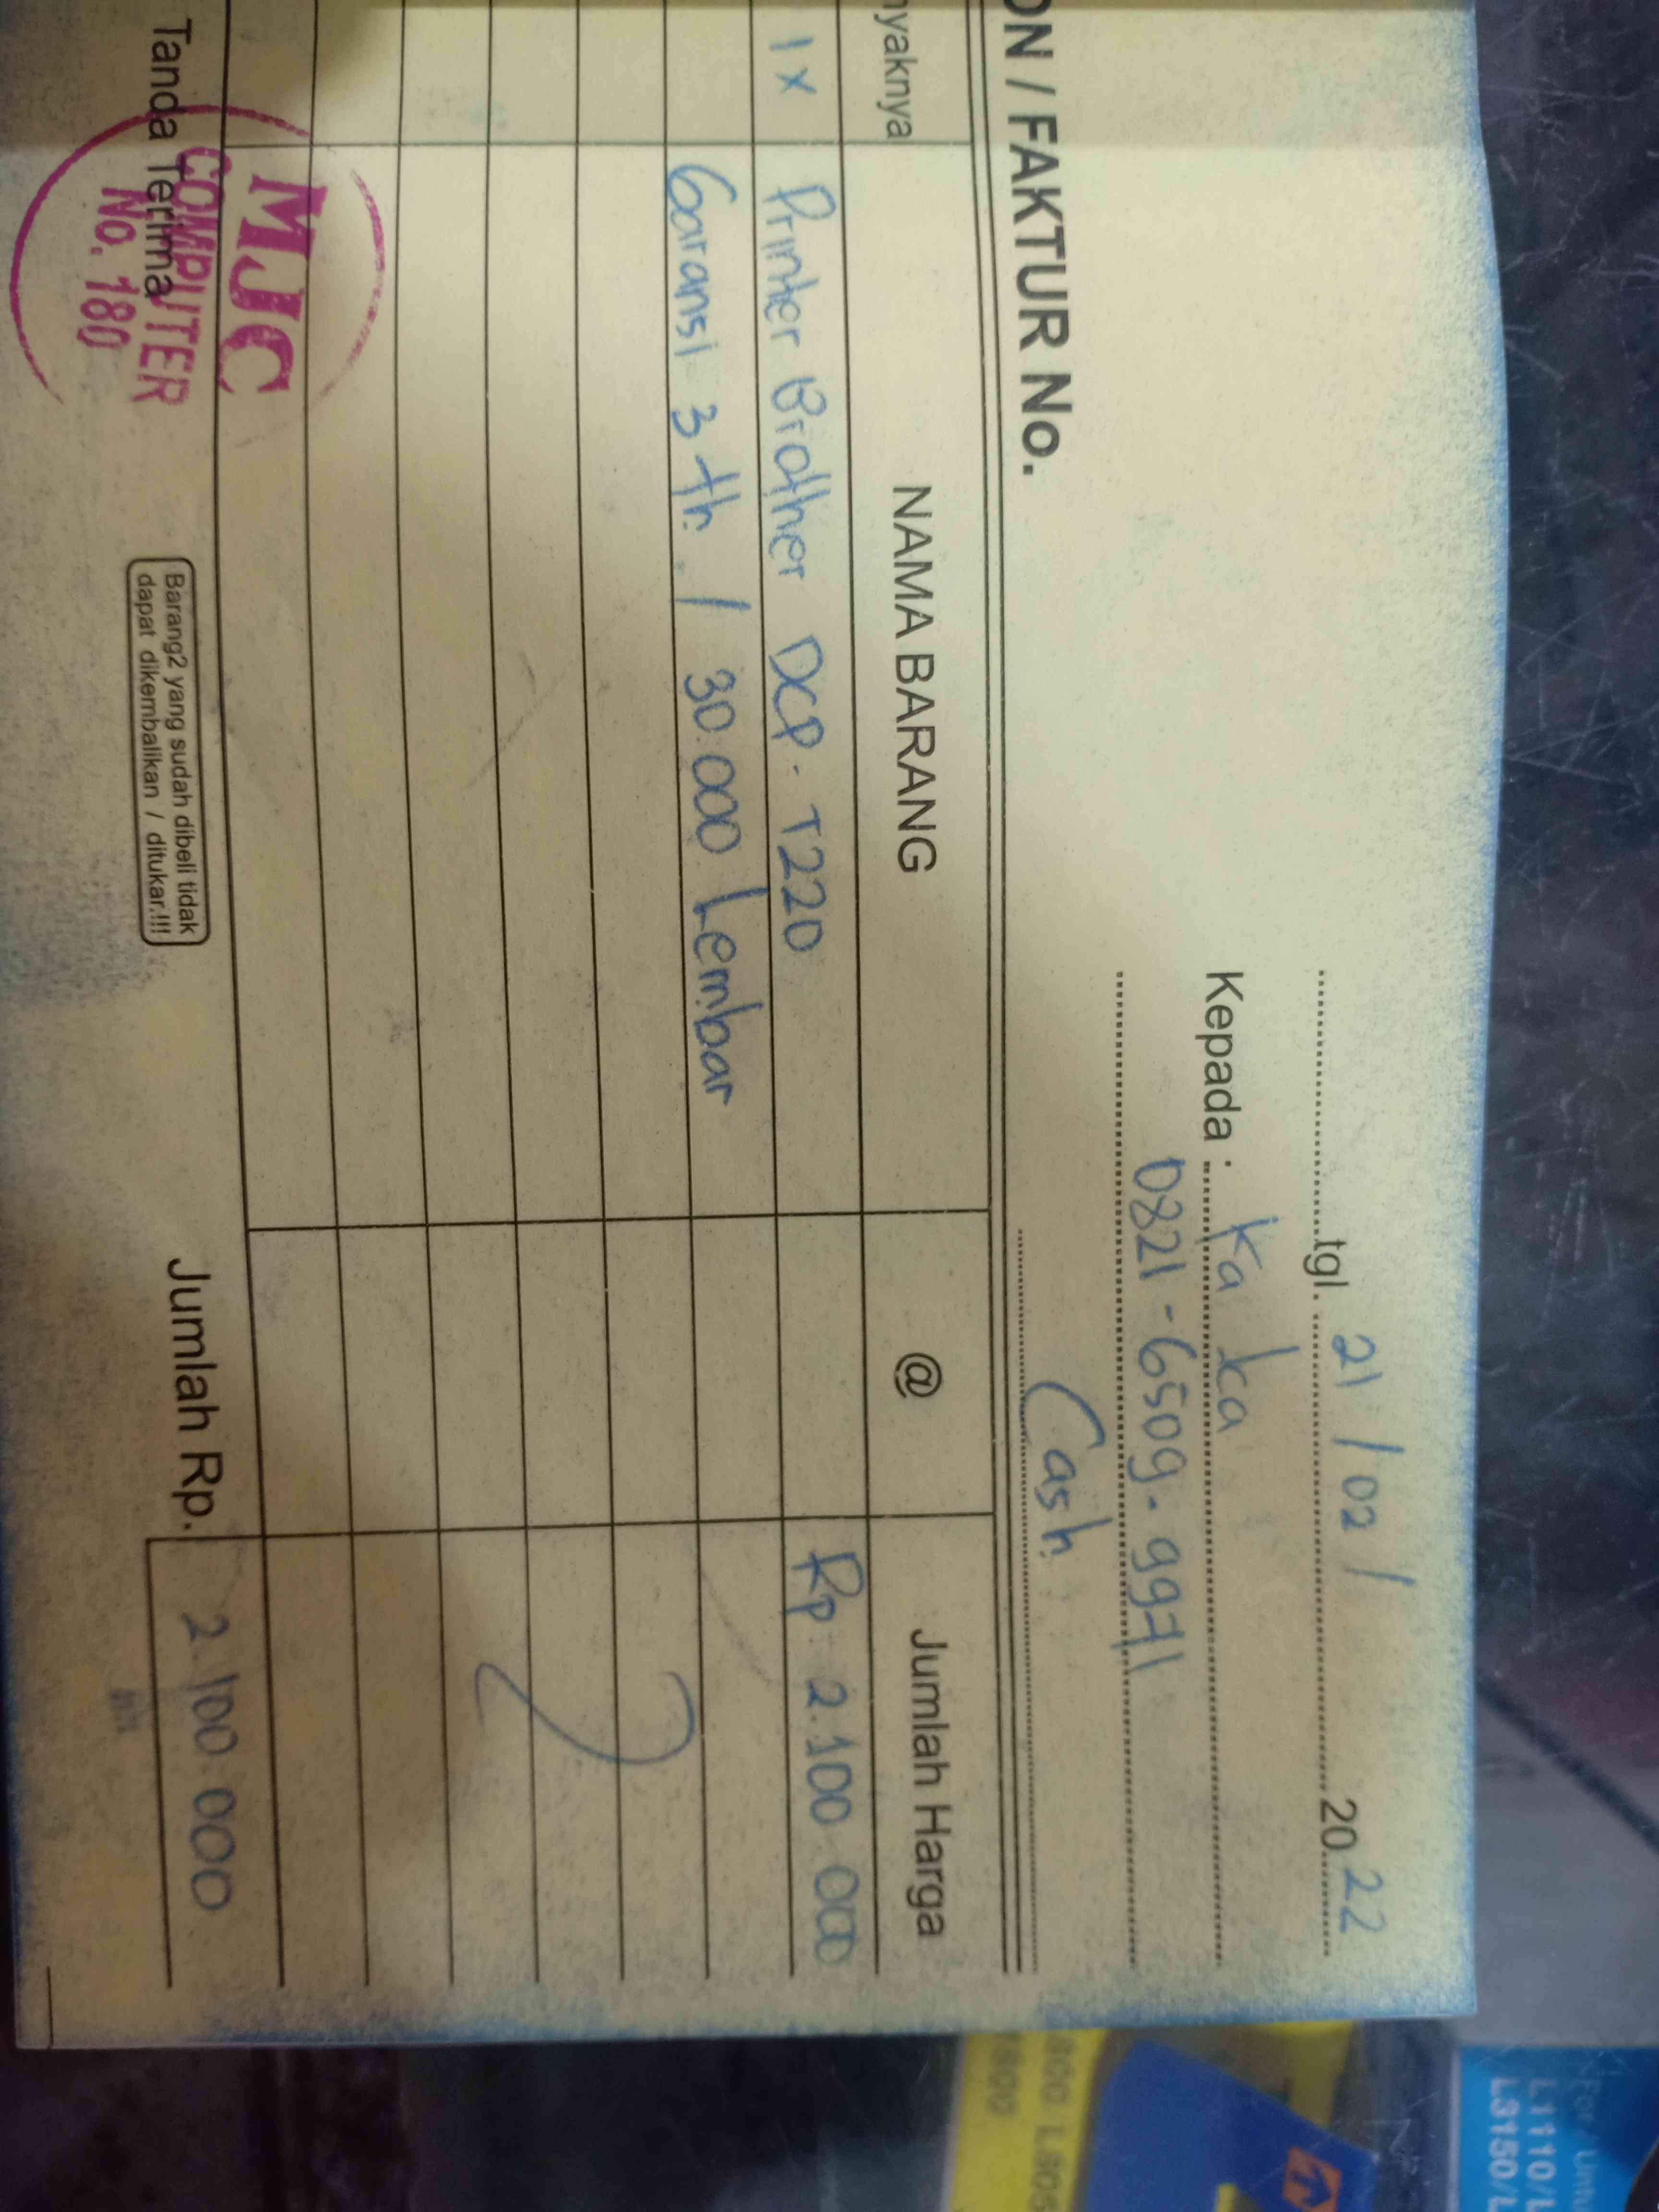 tgl. 21 / 02 / 2022
Kepada : Ka Ica
0821-6509.9971
ON / FAKTUR No. Cash
nyaknya NAMA BARANG @ Jumlah Harga
1 x Printer Brother DCP. T220 Rp 2.100.000
Garansi 3 th / 30.000 Lembar
Tanda Terima Jumlah Rp. 2.100.000
MJC
COMPUTER
No. 180
Barang2 yang sudah dibeli tidak
dapat dikembalikan / ditukar.!!!
L1110/L
L3150/L